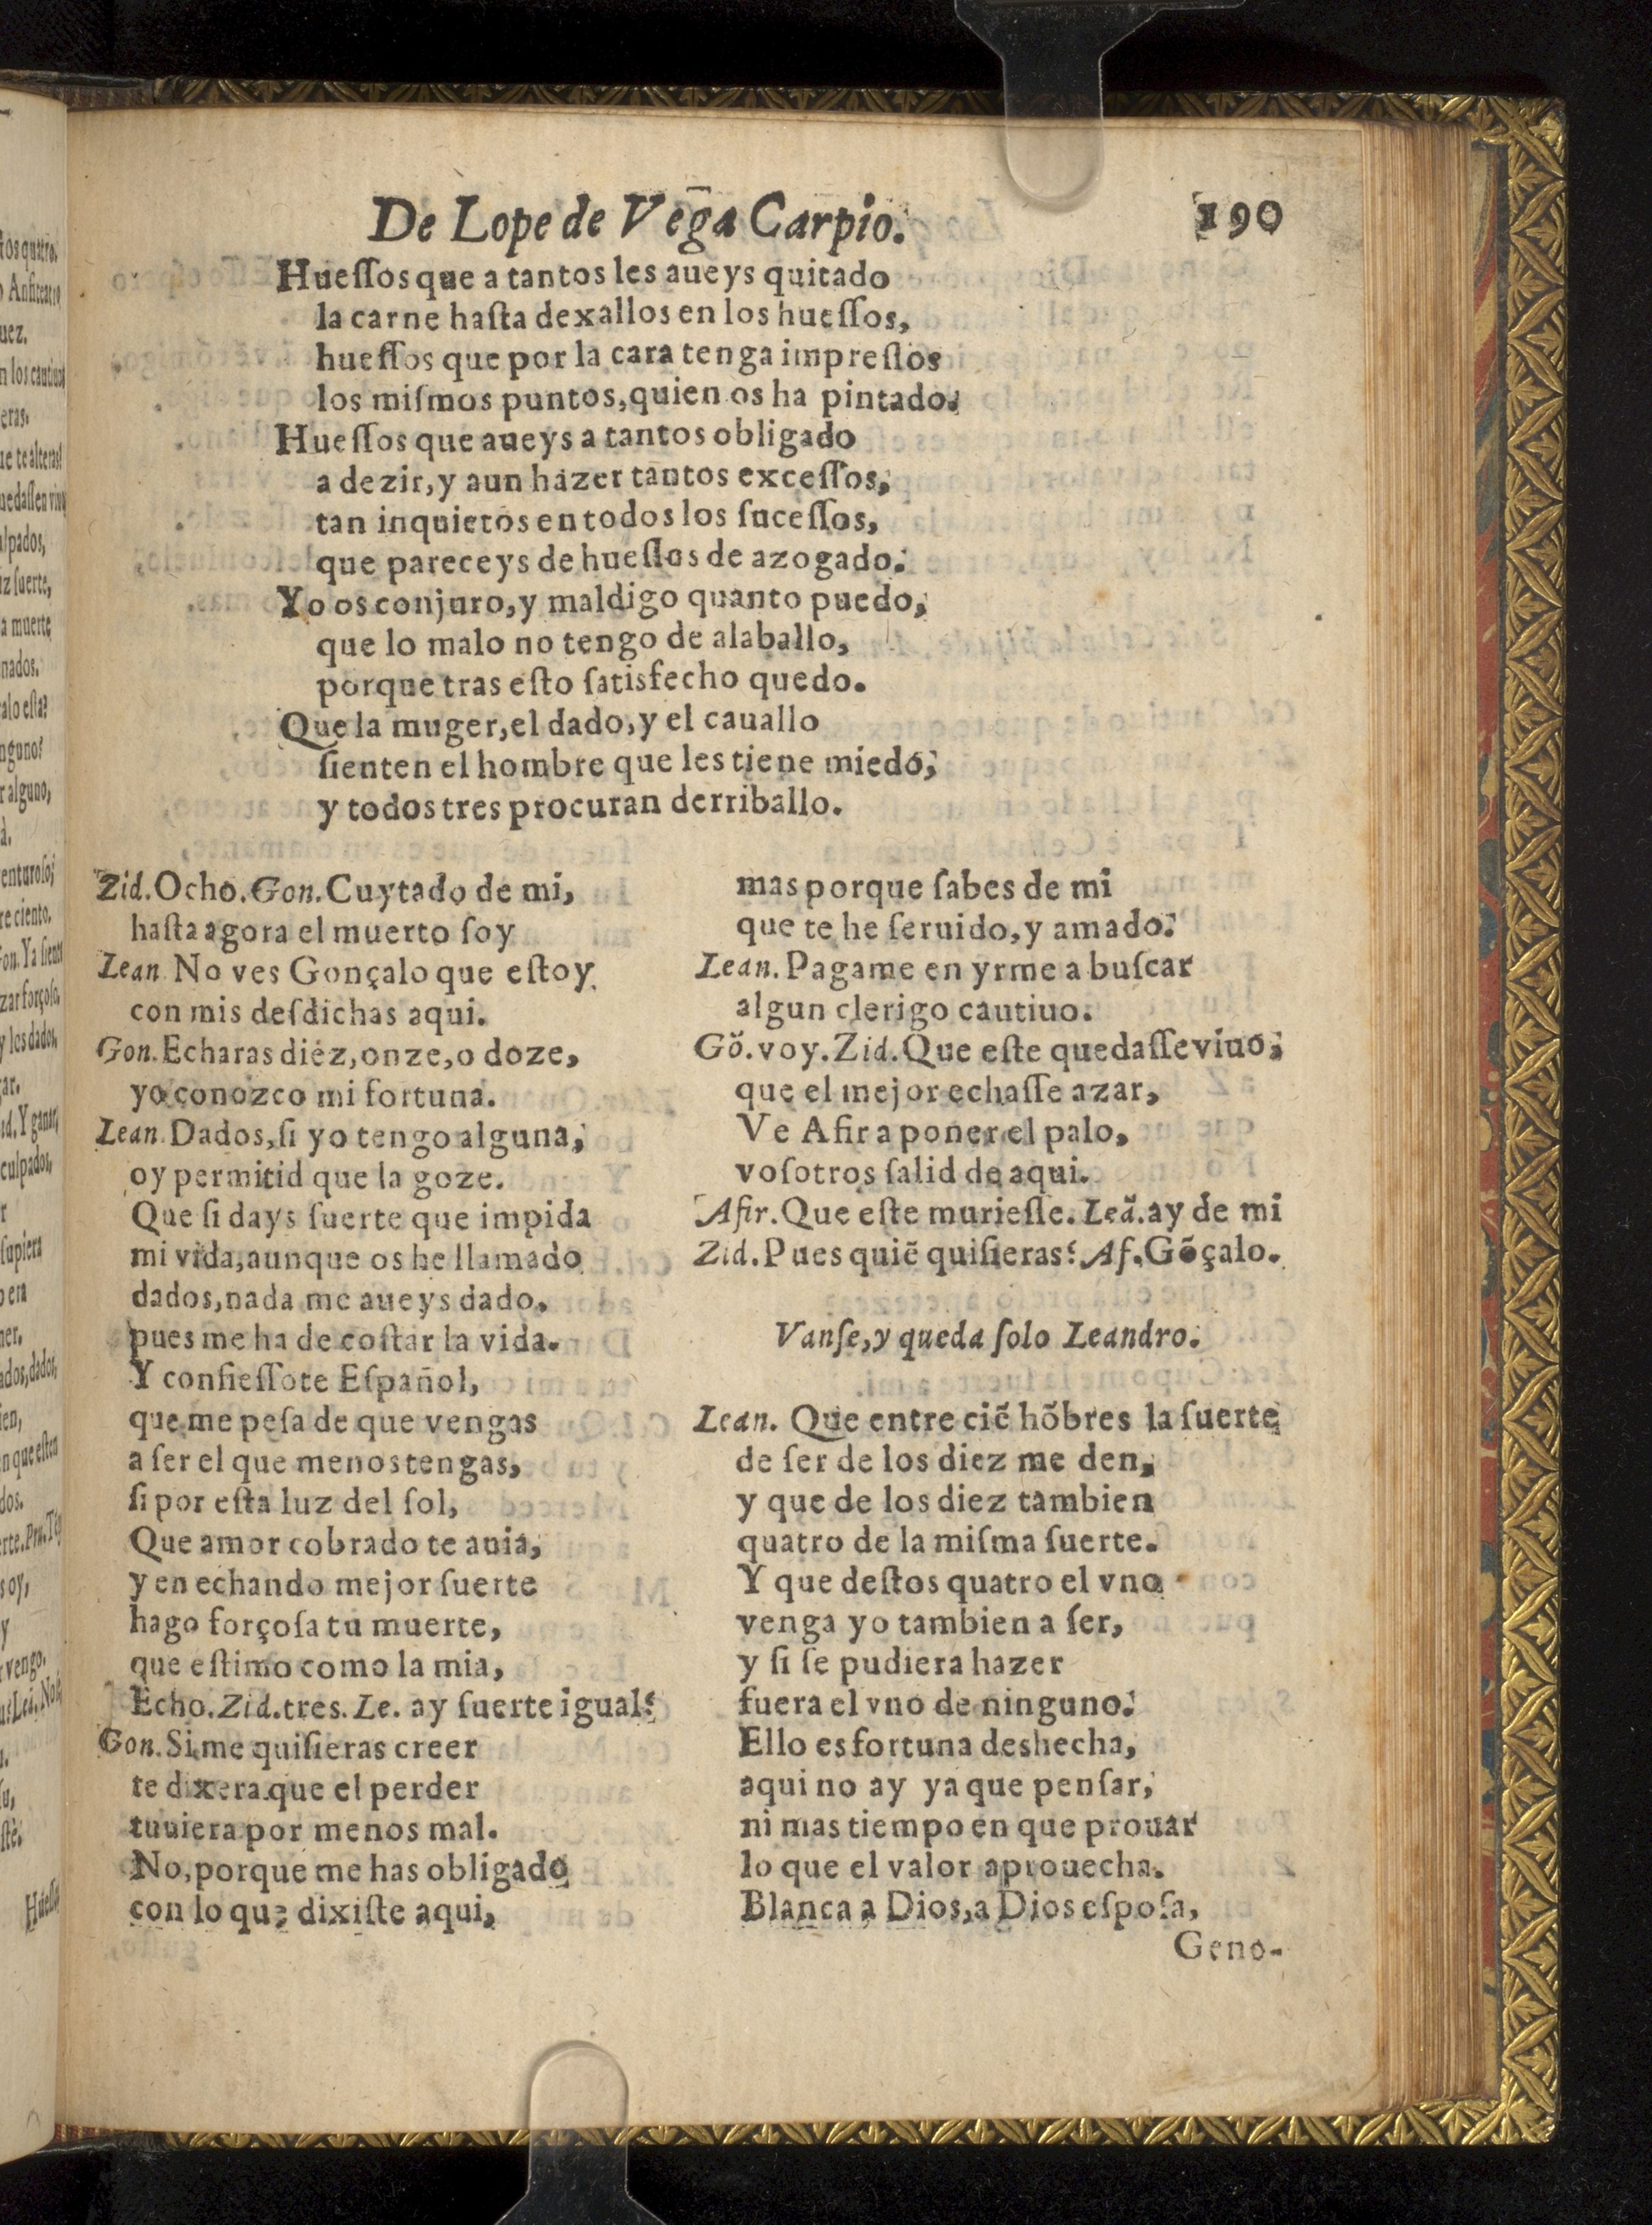 De Lope de Vega Carpio.
190
Hueſſos que a tantos les aueys quitado
la carne haſta dexallos en los hueſſos,
hueſſos que por la cara tenga impreſſos
los miſmos puntos, quien os ha pintado.
Hueſſos que aueys a tantos obligado
a dezir, y aun hazer tantos exceſſos,
tan inquietos en todos los ſuceſſos,
que pareceys de hueſſos de azogado.
Yo os conjuro, y maldigo quanto puedo,
que lo malo no tengo de alaballo,
porque tras eſto ſatisfecho quedo.
Que la muger, el dado, y el cauallo
ſienten el hombre que les tiene miedo,
y todos tres procuran derriballo.
Zid. Ocho. Gon. Cuytado de mi,
haſta agora el muerto ſoy
Lean. No ves Gonçalo que eſtoy
con mis deſdichas aqui.
Gon. Echaras diez, onze, o doze,
yo conozco mi fortuna.
Lean. Dados, ſi yo tengo alguna,
oy permitid que la goze.
Que ſi days ſuerte que impida
mi vida, aunque os he llamado
dados, nada me aueys dado,
pues me ha de coſtar la vida.
Y confieſſote Eſpañol,
que me peſa de que vengas
a ſer el que menos tengas,
ſi por eſta luz del ſol,
Que amor cobrado te auia,
y en echando mejor ſuerte
hago forçoſa tu muerte,
que eſtimo como la mia,
Echo. Zid. tres. Le. ay ſuerte igual?
Gon. Si me quiſieras creer
te dixera que el perder
tuuiera por menos mal.
No, porque me has obligado
con lo que dixiſte aqui,
mas porque ſabes de mi
que te he ſeruido, y amado.
Lean. Pagame en yrme a buſcar
algun clerigo cautiuo.
Gõ. voy. Zid. Que eſte quedaſſe viuo,
que el mejor echaſſe azar,
Ve Afir a poner el palo,
voſotros ſalid de aqui.
Afir. Que eſte murieſſe. Leã. ay de mi
Zid. Pues quiẽ quiſieras? Af. Gõçalo.
Vanſe, y queda ſolo Leandro.
Lean. Que entre ciẽ hõbres la ſuerte
de ſer de los diez me den,
y que de los diez tambien
quatro de la miſma ſuerte.
Y que deſtos quatro el vno
venga yo tambien a ſer,
y ſi ſe pudiera hazer
fuera el vno de ninguno.
Ello es fortuna deshecha,
aqui no ay ya que penſar,
ni mas tiempo en que prouar
lo que el valor aprouecha.
Blanca a Dios, a Dios eſpoſa,
Geno-